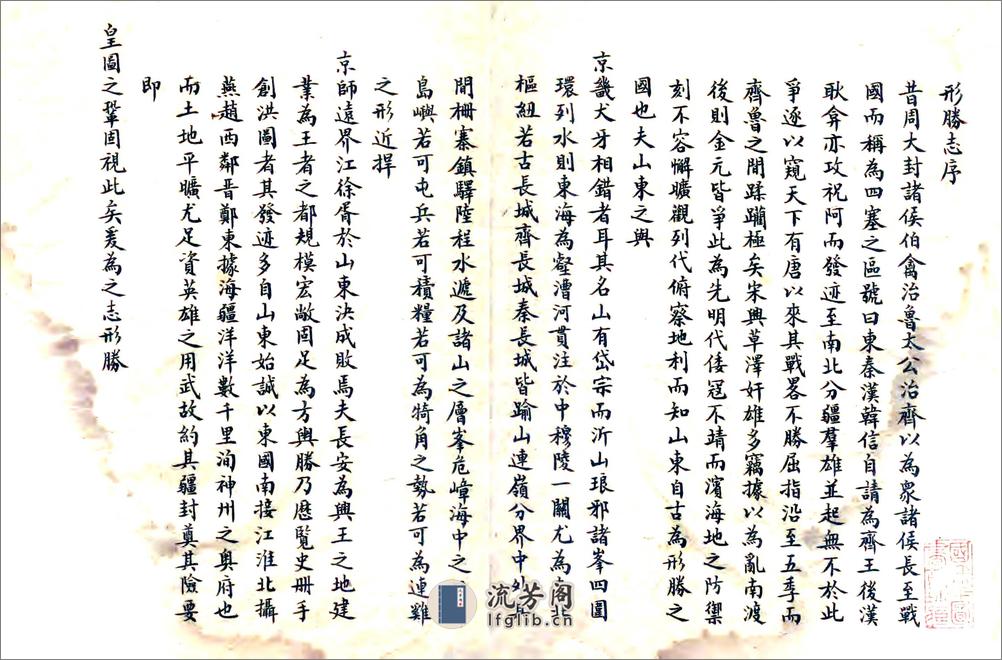 形勝志序
昔周大封諸侯伯禽治魯太公治齊以為衆諸侯長至戰
國而稱為四塞之區號曰東秦漢韓信自請為齊王後漢
耿弇亦攻祝阿而發迹至南北分疆羣雄並起無不於此
爭逐以窺天下有唐以來其戰畧不勝屈指沿至五季而
齊魯之間蹂躪極矣宋興草澤奸雄多竊據以為亂南渡
後則金元皆爭此為先明代倭冦不靖而濱海地之防禦
刻不容懈曠觀列代俯察地利而知山東自古為形勝之
國也夫山東之與
京畿犬牙相錯者耳其名山有岱宗而沂山琅邪諸峯四圍
環列水則東海為壑漕河貫注於中穆陵一關尤為南北
樞紐若古長城齊長城秦長城皆踰山連嶺分界中外
間柵寨鎮驛陸程水遞及諸山之層峯危嶂海中之
島嶼若可屯兵若可積糧若可為犄角之勢若可為連雞
之形近捍
京師遠界江徐胥於山東決成敗焉夫長安為興王之地建
業為王者之都規模宏敞固足為方輿勝乃歷覽史册手
創洪圖者其發迹多自山東始誠以東國南接江淮北攝
燕趙西鄰晋鄭東據海疆洋洋數千里洵神州之奥府也
而土地平曠尤足資英雄之用武故約其疆封奠其險要
即
皇圖之鞏固視此矣爰為之志形勝
流芳阁
lfglib.cn